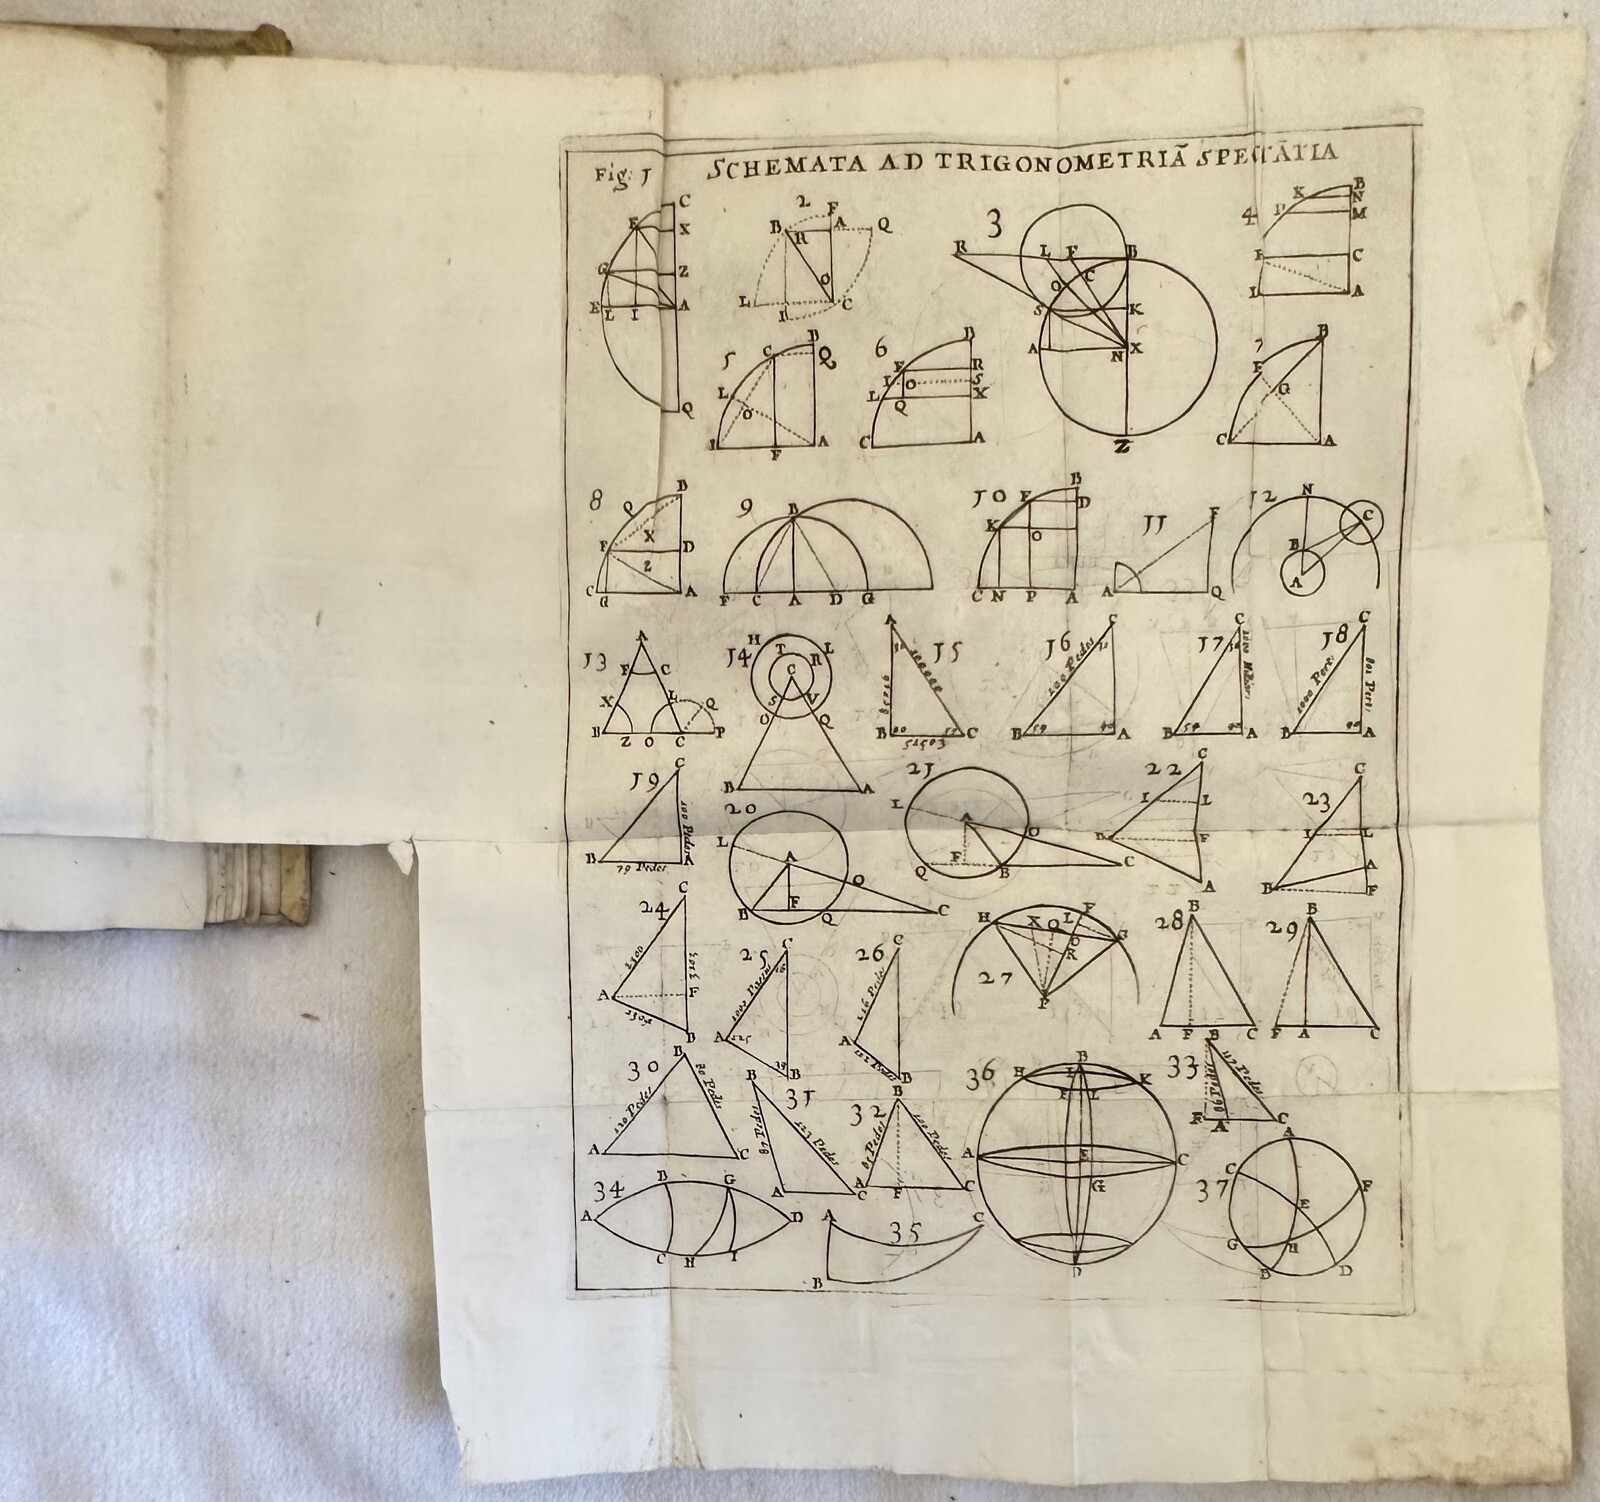 Fig: 1 SCHEMATA AD TRIGONOMETRIÃ SPECTÃTIA
C
X
Z
G
E L I A
Q
2
F
B R A Q
O
L I C
3
R L F B
O C
S K
A N X
Z
4
X B
N
M
C
A
5
B
C Q
L
O
F A
6
B
F R
I O S
L Q X
C A
7
B
F
G
C A
8
B
Q
X
F D
Z
C G A
9
B
F C A D G
10
B
F D
K
O
C N P A
11
F
A Q
12
N
C
B
A
13
A
F C
X L Q
B Z O C P
14
H T L
C R
S V
O Q
B A
15
A
100000
B 90 C
51503
16
C
100 Pedes
B 59 90 A
17
C
B 54 90 A
18
C
1000 Perti
801 Perti
B 90 A
19
C
100 Pedes
B A
79 Pedes
20
L
A
O
B F Q C
21
L
A
O
Q F B C
22
C
I L
B F
A
23
C
I L
A
B F
24
C
A F
B
25
C
A 125
B
26
C
A
B
27
H X Q L F G
O
R
P
28
B
A F C
29
B
F A C
30
B
120 Pedes
90 Pedes
A C
31
B
87 Pedes
123 Pedes
A C
32
B
85 Pedes
100 Pedes
A F C
33
B
117 Pedes
F A C
34
B G
A D
C H I
35
A C
B
36
B
H I K
F L
A E C
G
D
37
A
C F
E
G H
B D